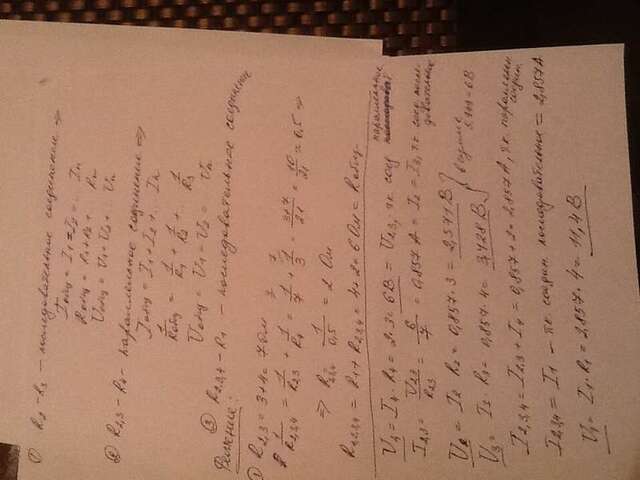 ① R2 - R3 - последовательное соединение ⇒
Iобщ = I1 = I2 = .. In
Rобщ = R1 + R2 + .. Rn
Uобщ = U1 + U2 + .. Un
② R2,3 - R4 - параллельное соединение ⇒
Iобщ = I1 + I2 + .. In
1/Rобщ = 1/R1 + 1/R2 + .. 1/R3
Uобщ = U1 = U2 = .. Un
③ R2,3,4 - R1 - последовательное соединение
Решение:
① R2,3 = 3+4 = 7 Ом
1/R2,3,4 = 1/R2,3 + 1/R4 = 1/7 + 1/3 = 3+7/21 = 10/21 ≈ 0,5 ⇒
⇒ R2,3,4 = 1/0,5 = 2 Ом
R1,2,3,4 = R1 + R2,3,4 = 4+2 = 6 Ом = Rобщ
U4 = I4 · R4 = 2·3 = 6 В = U2,3, т.к. соед. параллельное
I2,3 = U2,3/R2,3 = 6/7 = 0,857 А = I2 = I3, т.к. соед. последовательное
U2 = I2 · R2 = 0,857 · 3 = 2,571 В
U3 = I3 · R3 = 0,857 · 4 = 3,428 В
I2,3,4 = I2,3 + I4 = 0,857 + 2 = 2,857 А, т.к. параллельн. соедин.
I2,3,4 = I1 - т.к. соедин. последовательное = 2,857 А
U1 = I1 · R1 = 2,857 · 4 = 11,4 В